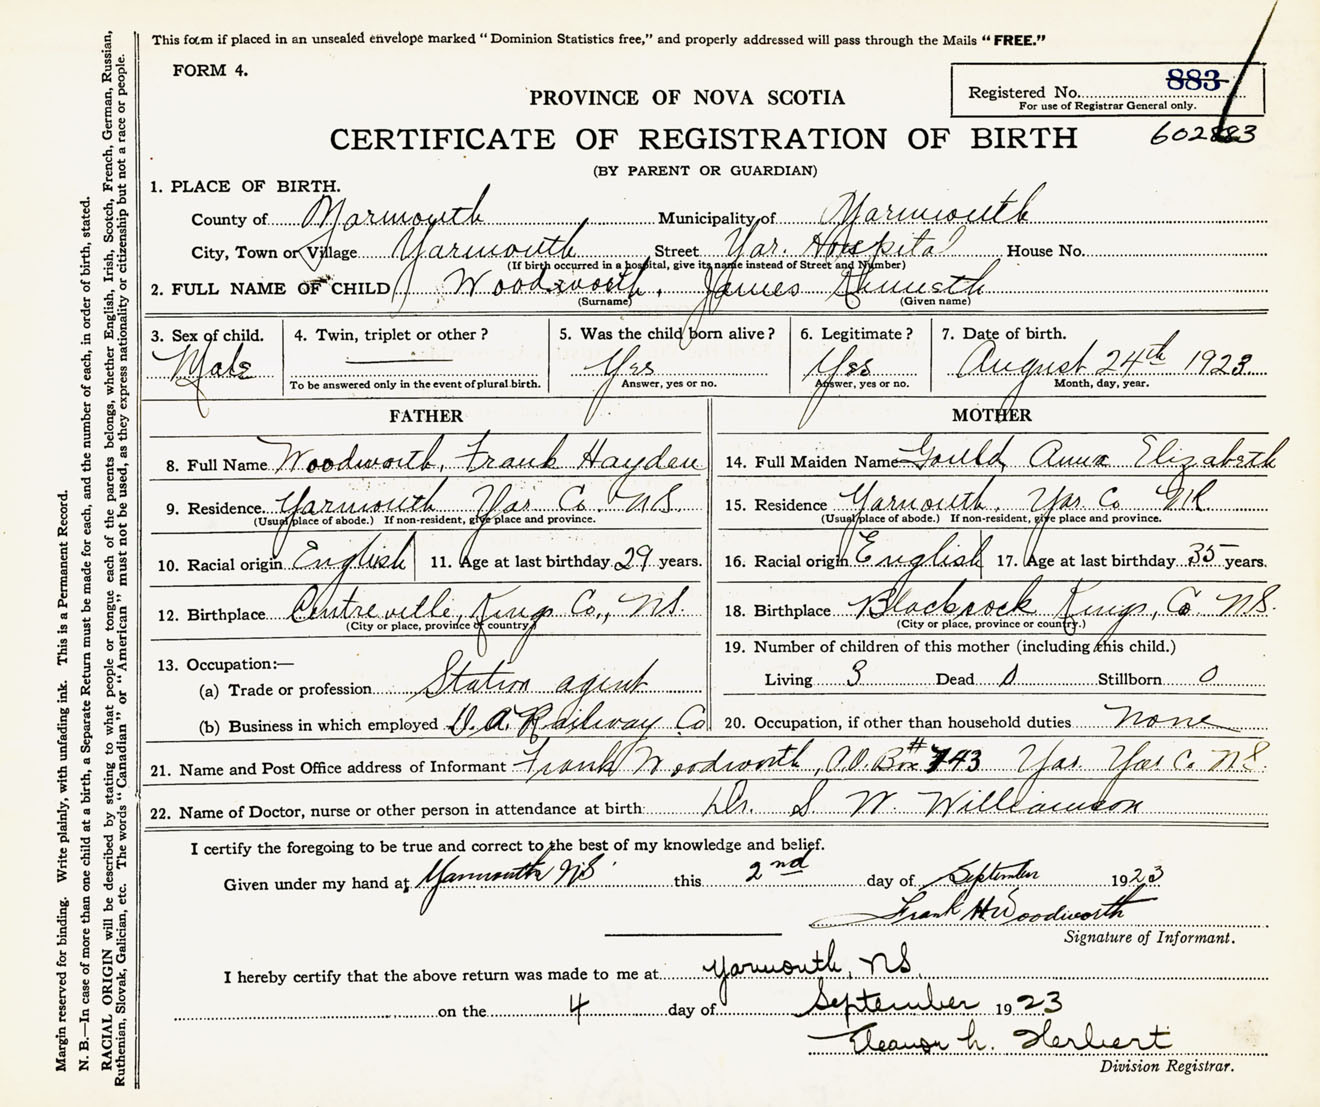 This form if placed in an unsealed envelope marked "Dominion Statistics free," and properly addressed will pass through the Mails "FREE."
FORM 4.
Registered No. 883
For use of Registrar General only.
602883
PROVINCE OF NOVA SCOTIA
CERTIFICATE OF REGISTRATION OF BIRTH
(BY PARENT OR GUARDIAN)
1. PLACE OF BIRTH.
County of Yarmouth Municipality of Yarmouth
City, Town or Village Yarmouth Street Yar. Hospital House No.
(If birth occurred in a hospital, give its name instead of Street and Number)
2. FULL NAME OF CHILD Woodworth, James Kenneth
(Surname) (Given name)
3. Sex of child. 4. Twin, triplet or other? 5. Was the child born alive? 6. Legitimate? 7. Date of birth.
Male Yes Yes August 24th 1923
To be answered only in the event of plural birth. Answer, yes or no. Answer, yes or no. Month, day, year.
FATHER
8. Full Name Woodworth, Frank Hayden
9. Residence. Yarmouth Yar. Co. N.S.
(Usual place of abode.) If non-resident, give place and province.
10. Racial origin English 11. Age at last birthday 29 years.
12. Birthplace Centreville, Kings Co., N.S.
(City or place, province or country)
13. Occupation:—
(a) Trade or profession Station agent
(b) Business in which employed D. A. Railway Co
MOTHER
14. Full Maiden Name Gould, Anna Elizabeth
15. Residence Yarmouth, Yar. Co NS
(Usual place of abode.) If non-resident, give place and province.
16. Racial origin English 17. Age at last birthday 35 years.
18. Birthplace Blackrock Kings, Co. N.S.
(City or place, province or country.)
19. Number of children of this mother (including this child.)
Living 3 Dead 0 Stillborn 0
20. Occupation, if other than household duties None
21. Name and Post Office address of Informant Frank Woodworth, P.O. Box #743 Yar. Yar. Co. N.S.
22. Name of Doctor, nurse or other person in attendance at birth Dr. S W. Williamson
I certify the foregoing to be true and correct to the best of my knowledge and belief.
Given under my hand at Yarmouth NS this 2nd day of September 1923
Frank H. Woodworth
Signature of Informant.
I hereby certify that the above return was made to me at Yarmouth, N.S.
on the 4 day of September 1923
Eleanor h. Herbert
Division Registrar.
Margin reserved for binding. Write plainly, with unfading ink. This is a Permanent Record.
N. B.—In case of more than one child at a birth, a Separate Return must be made for each, and the number of each, in order of birth, stated.
RACIAL ORIGIN will be described by stating to what people or tongue each of the parents belongs, whether English, Irish, Scotch, French, German, Russian,
Ruthenian, Slovak, Galician, etc. The words "Canadian" or "American" must not be used, as they express nationality or citizenship but not a race or people.